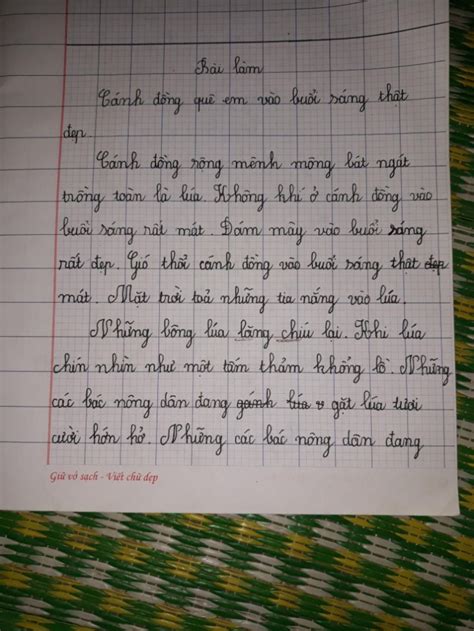 Bài làm
Cánh đồng quê em vào buổi sáng thật
đẹp.
Cánh đồng rộng mênh mông bát ngát
trồng toàn là lúa. Không khí ở cánh đồng vào
buổi sáng rất mát. Đám mây vào buổi sáng
rất đẹp. Gió thổi cánh đồng vào buổi sáng thật đẹp
mát. Mặt trời toả những tia nắng vào lúa.
Những bông lúa lăng chíu lại. Khi lúa
chín nhìn như một tấm thảm khổng lồ. Những
các bác nông dân đang gánh lúa v gặt lúa tươi
cười hớn hở. Những các bác nông dân đang
Giữ vở sạch - Viết chữ đẹp